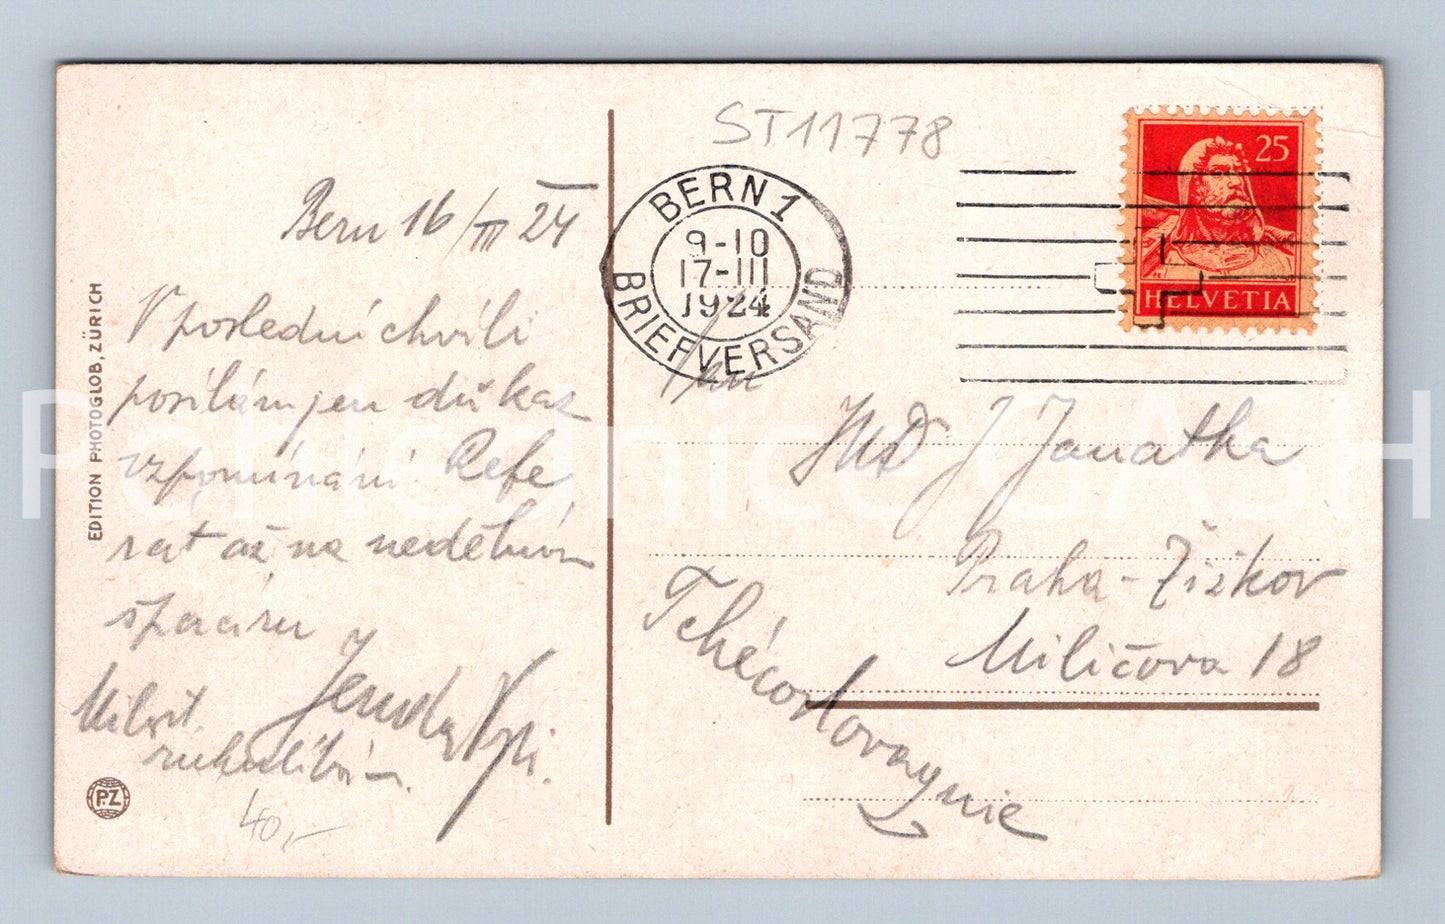 ST11778
Bern 16/III 24
V poslední chvíli
posílám jen důkaz
vzpomínání Refe
rát až na nedělním
Milost
ruku líbám
40,-
EDITION PHOTOGLOB, ZÜRICH
PZ
BERN 1
9-10
17-III
1924
BRIEFVERSAND
25
HELVETIA
Pan
JUD J Janatka
Praha-Žižkov
Miličova 18
Tchécoslovaquie
Pohlednice GASH